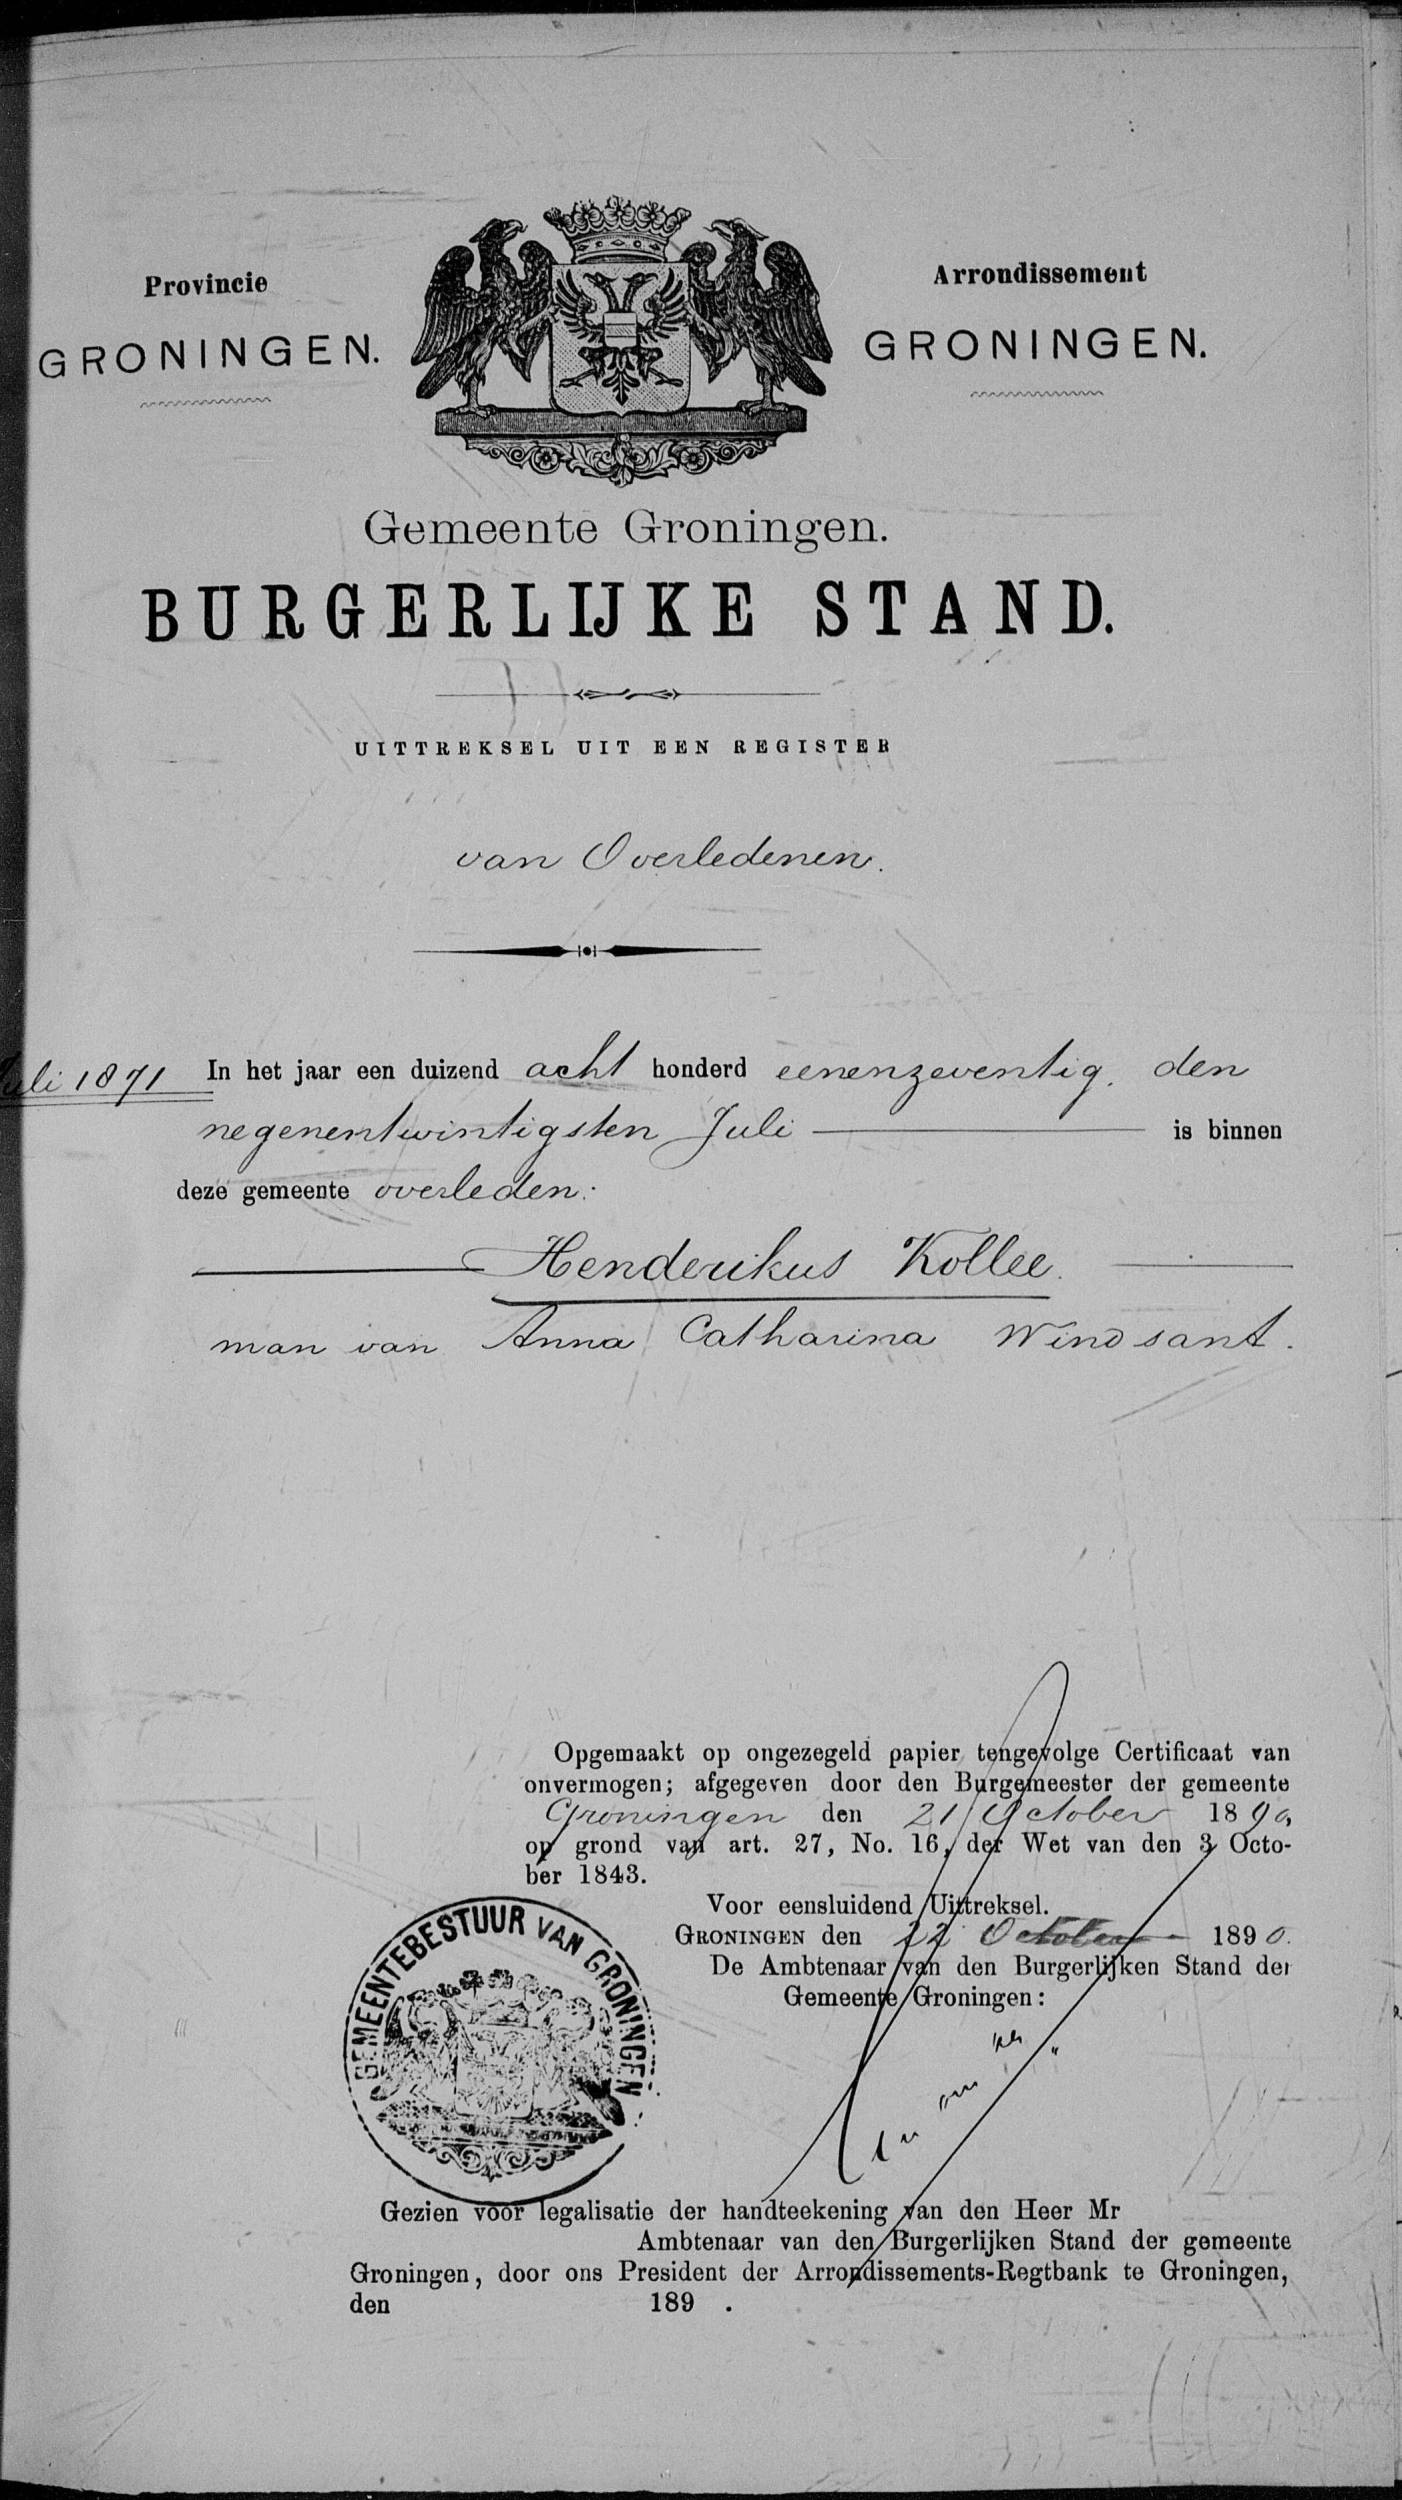 Provincie
GRONINGEN.
Arrondissement
GRONINGEN.
Gemeente Groningen.
BURGERLIJKE STAND.
UITTREKSEL UIT EEN REGISTER
van Overledenen.
Juli 1871
In het jaar een duizend acht honderd eenenzeventig, den
negenentwintigsten Juli is binnen
deze gemeente overleden:
Henderikus Kollee.
man van Anna Catharina Windsant.
Opgemaakt op ongezegeld papier tengevolge Certificaat van
onvermogen; afgegeven door den Burgemeester der gemeente
Groningen den 21 October 1890,
op grond van art. 27, No. 16, der Wet van den 3 Octo-
ber 1843.
Voor eensluidend Uittreksel.
GRONINGEN den 22 October 1890.
De Ambtenaar van den Burgerlijken Stand der
Gemeente Groningen:
GEMEENTEBESTUUR VAN GRONINGEN
Gezien voor legalisatie der handteekening van den Heer Mr
Ambtenaar van den Burgerlijken Stand der gemeente
Groningen, door ons President der Arrondissements-Regtbank te Groningen,
den 189 .